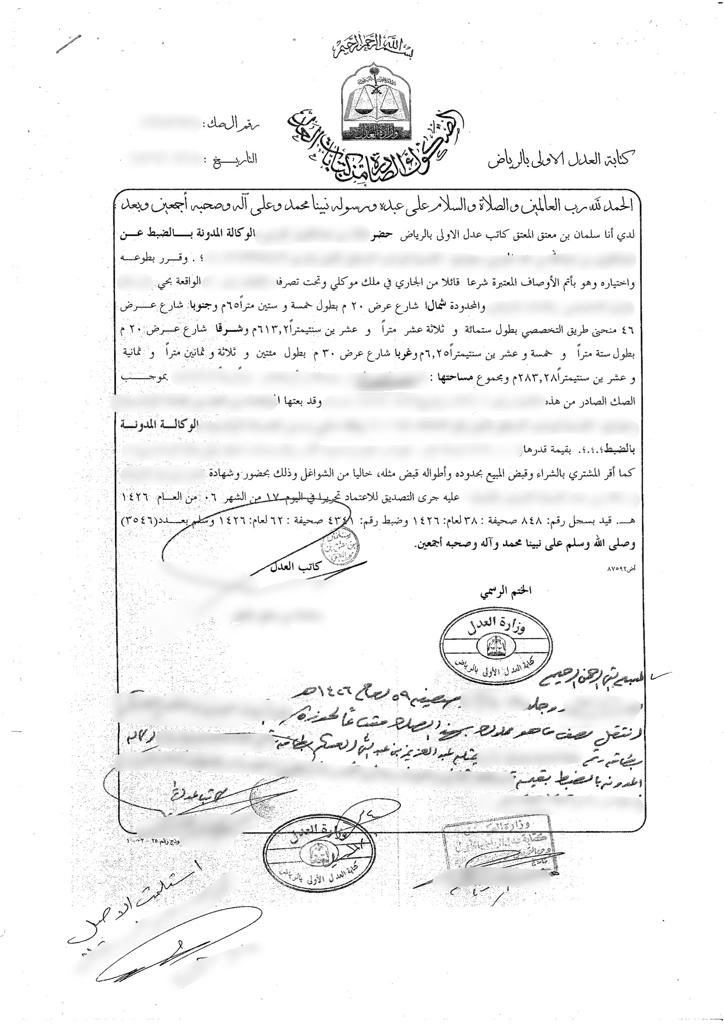 بسم الله الرحمن الرحيم
وزارة العدل
الصكوك الصادرة من كتابات العدل
رقم الصك:
كتابة العدل الاولى بالرياض
التاريخ :
الحمد لله رب العالمين والصلاة والسلام على عبده ورسوله نبينا محمد وعلى آله وصحبه أجمعين وبعد
لدي أنا سلمان بن معتق المعتق كاتب عدل الاولى بالرياض حضر الوكالة المدونة بالضبط عن
؛ وقرر بطوعه
واختياره وهو بأتم الأوصاف المعتبرة شرعا قائلا من الجاري في ملك موكلي وتحت تصرفه الواقعة بحي
والمحدودة شمالا شارع عرض ٢٠ م بطول خمسة و ستين متراً ٦٥م وجنوبا شارع عرض
٤٦ منحنى طريق التخصصي بطول ستمائة و ثلاثة عشر متراً و عشرين سنتيمتراً ٦١٣,٢م وشرقا شارع عرض ٢٠ م
بطول ستة متراً و خمسة و عشرين سنتيمتراً ٦,٢٥م وغربا شارع عرض ٣٠ م بطول مئتين و ثلاثة و ثمانين متراً و ثمانية
و عشرين سنتيمتراً ٢٨٣,٢٨م وبجموع مساحتها : بموجب
الصك الصادر من هذه وقد بعتها
الوكالة المدونة
بالضبط؛؛؛ بقيمة قدرها
كما أقر المشتري بالشراء وقبض المبيع بحدوده وأطواله قبض مثله، خاليا من الشواغل وذلك بحضور وشهادة
عليه جرى التصديق للاعتماد تحريرا في اليوم ١٧ من الشهر ٠٦ من العام ١٤٢٦
هـ. قيد بسجل رقم: ٨٤٨ صحيفة : ٣٨ لعام: ١٤٢٦ وضبط رقم: ٤٣٤١ صحيفة : ٦٢ لعام: ١٤٢٦ وسلم بعدد(٣٥٤٦)
وصلى الله وسلم على نبينا محمد وآله وصحبه أجمعين.
كاتب العدل
أض٨٧٥٩٢
الختم الرسمي
وزارة العدل
كتابة العدل الأولى بالرياض
بسم الله الرحمن الرحيم
بصحيفه ٥٩ لعام ١٤٢٦هـ
انتقل نصف ما هو مملوك بهذا الصك مشاعاً
بطاقة رقم عبد العزيز بن عبد الله بطاقة
المدونه بالضبط بقيمة
كاتب عدل
وزارة العدل
كتابة العدل الأولى بالرياض
وزارة العدل
استلمت الاصل